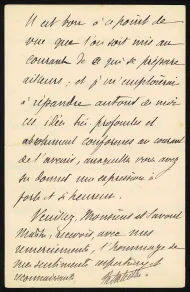 Il est bon à ce point de
vue que l'on soit mis au
courant de ce qui se prépare
ailleurs : et j'emploierai
à répandre autour de moi
ces idées très profondes et
absolument conformes au courant
de l'avenir, auxquelles vous avez
su donner une expression si
forte et si heureuse.
Veuillez, Monsieur et savant
Maître, recevoir, avec mes
remerciements, l'hommage de
mes sentiments respectueux et
reconnaissants.